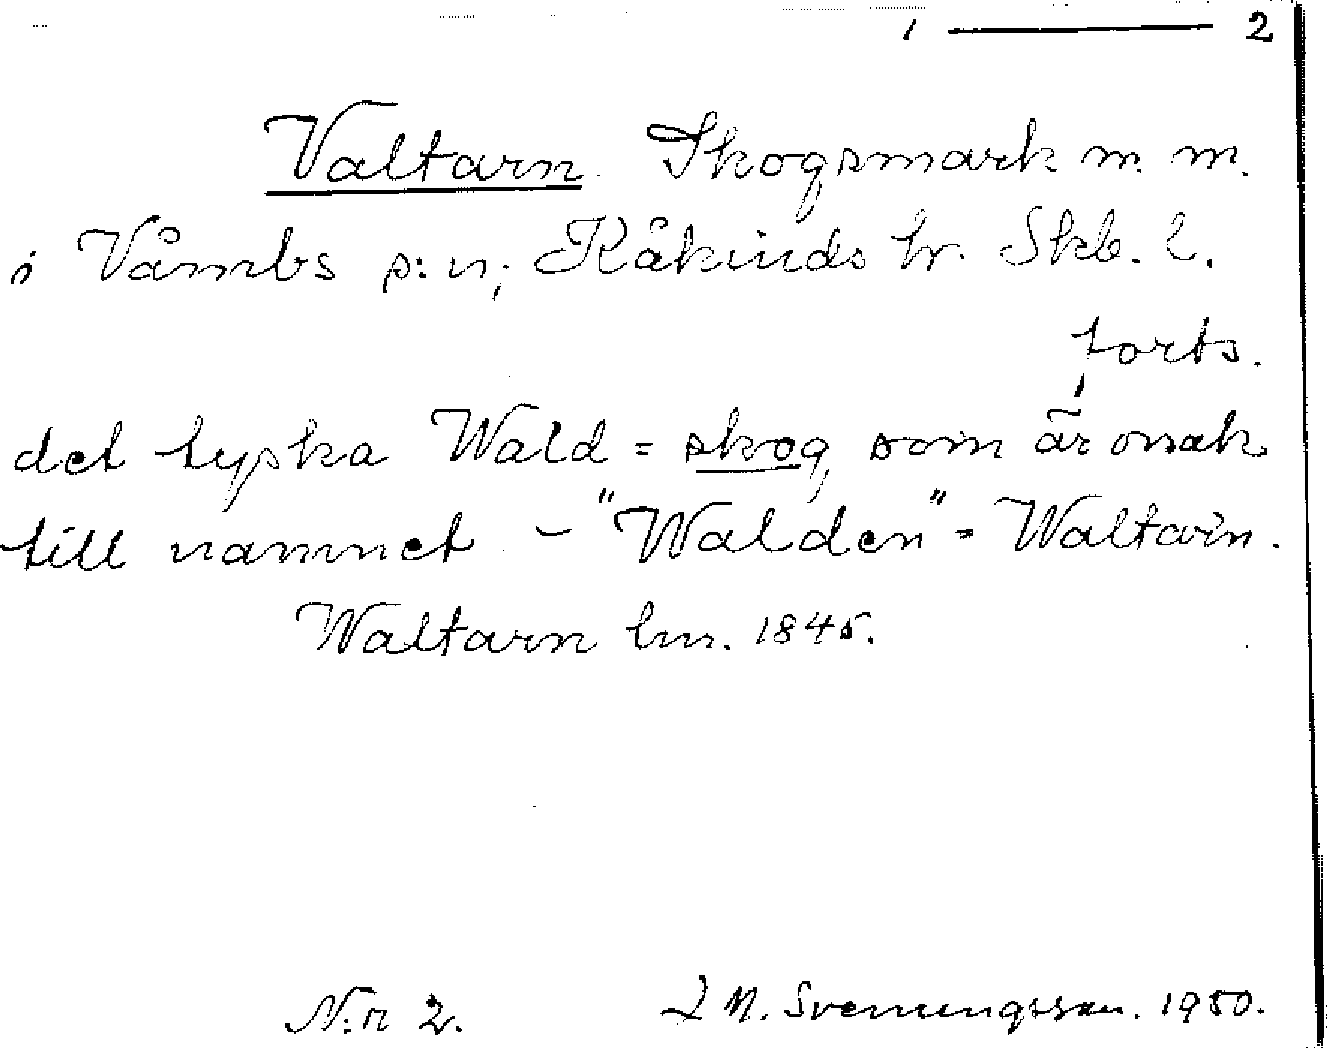 1 — 2
Valtarn. Skogsmark m. m.
i Våmbs s:n, Kåkinds hr. Skb. l.
forts.
det tyska Wald = skog, som är orsak
till namnet - "Walden" = Waltarn.
Waltarn lm. 1845.
N:r 2. J M. Svenungsson. 1950.